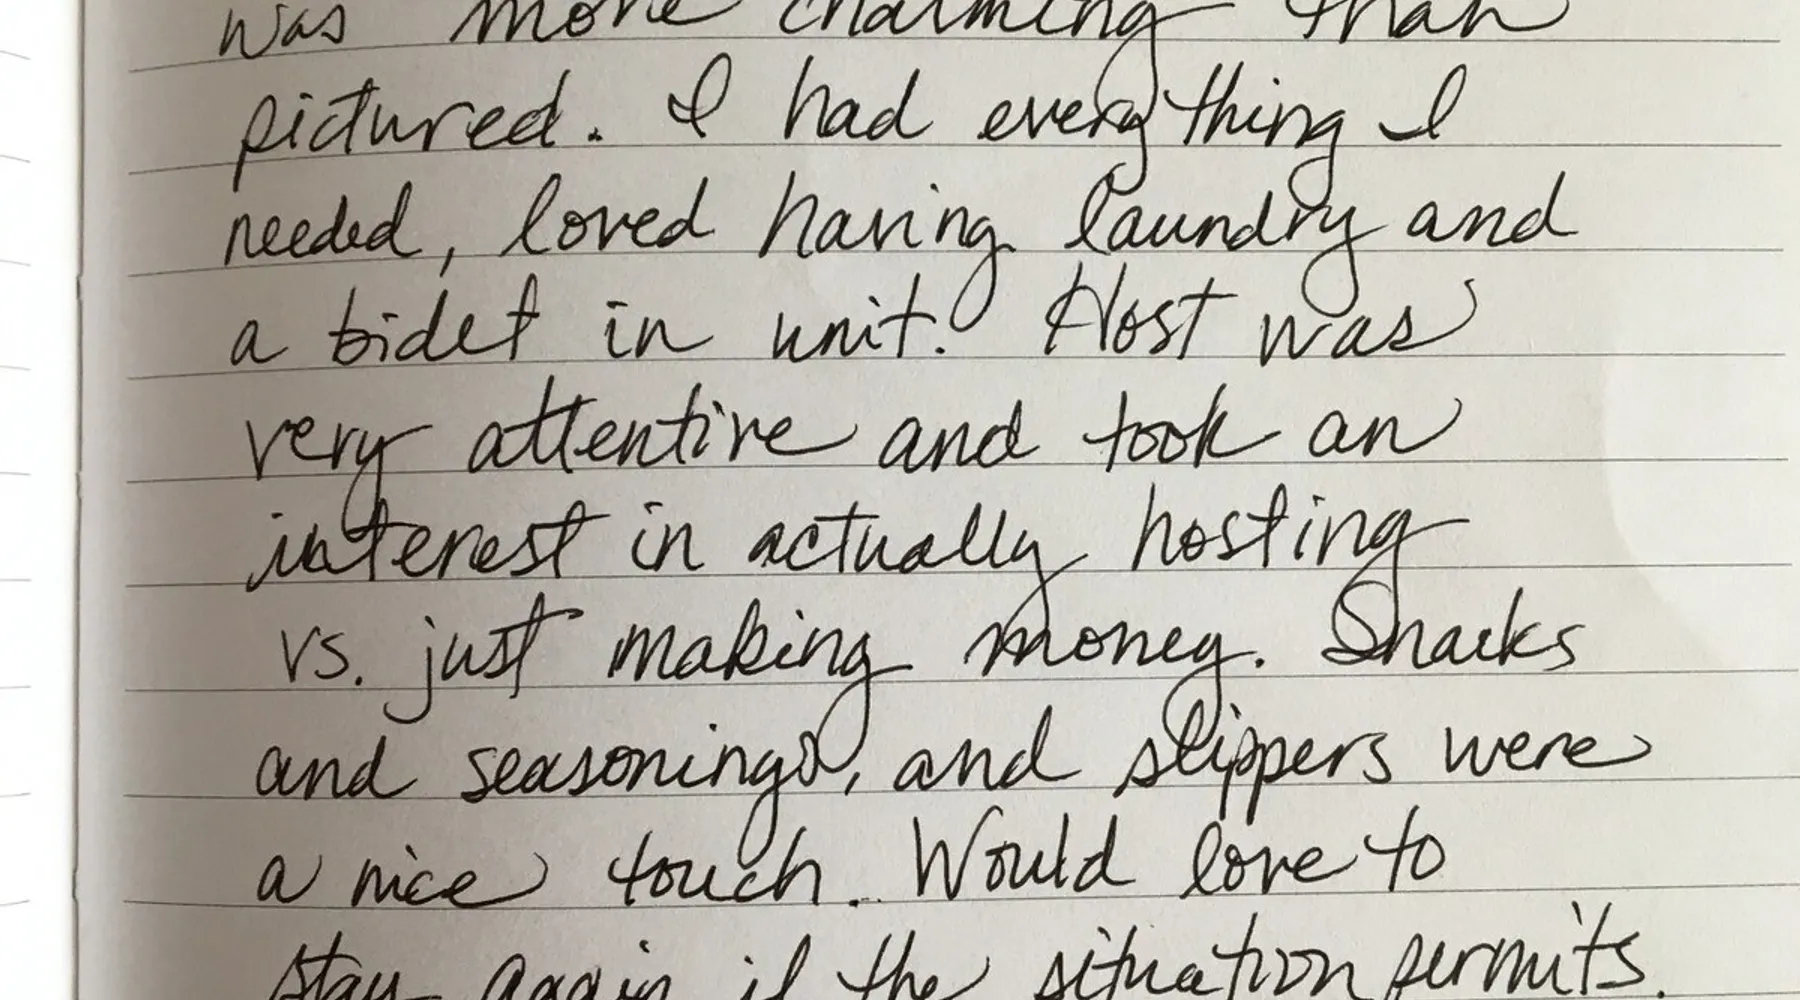 was more charming than
pictured. I had everything I
needed, loved having laundry and
a bidet in unit. Host was
very attentive and took an
interest in actually hosting
vs. just making money. Snacks
and seasonings, and slippers were
a nice touch. Would love to
stay again if the situation permits.